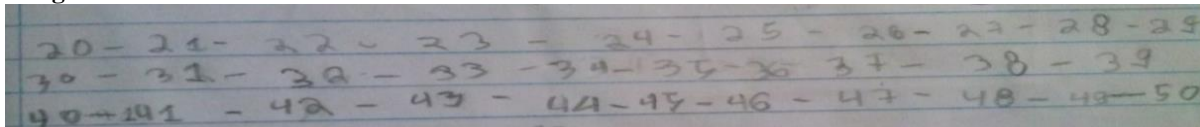 20 - 21 - 22 - 23 - 24 - 25 - 26 - 27 - 28 - 29
30 - 31 - 32 - 33 - 34 - 35 - 36 37 - 38 - 39
40 - 141 - 42 - 43 - 44 - 45 - 46 - 47 - 48 - 49 - 50